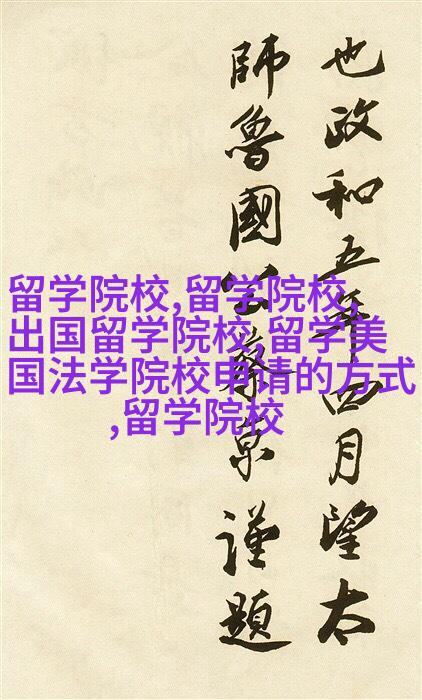 也政和五年四月望太
師魯國公蔡京謹題
留学院校,留学院校,
出国留学院校,留学美
国法学院校申请的方式
,留学院校